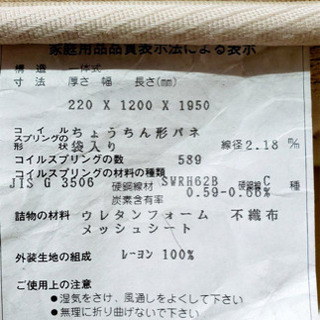 家庭用品品質表示法による表示
構造 一体式
寸法 厚さ 幅 長さ(㎜)
220 X 1200 X 1950
コイルスプリングの形状 ちょうちん形バネ 袋入り 線径 2.18 ㎜
コイルスプリングの数 589
コイルスプリングの材料の種類
JIS G 3506 硬鋼線材 SWRH62B 硬鋼線 C 種
炭素含有率 0.59-0.66%
詰物の材料 ウレタンフォーム 不織布
メッシュシート
外装生地の組成 レーヨン 100%
ご使用上の注意
●湿気をさけ、風通しをよくして下さい
●無理に折り曲げないで下さい